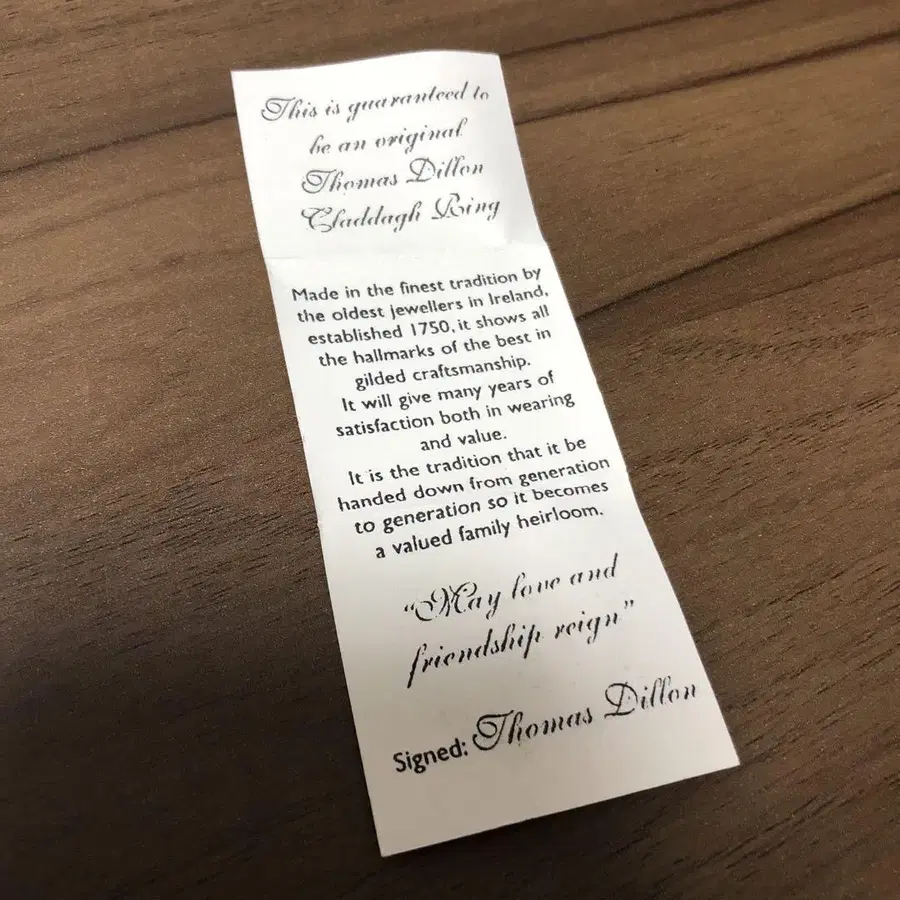 This is guaranteed to
be an original
Thomas Dillon
Claddagh Ring
Made in the finest tradition by
the oldest jewellers in Ireland,
established 1750, it shows all
the hallmarks of the best in
gilded craftsmanship.
It will give many years of
satisfaction both in wearing
and value.
It is the tradition that it be
handed down from generation
to generation so it becomes
a valued family heirloom.
“May love and
friendship reign”
Signed: Thomas Dillon